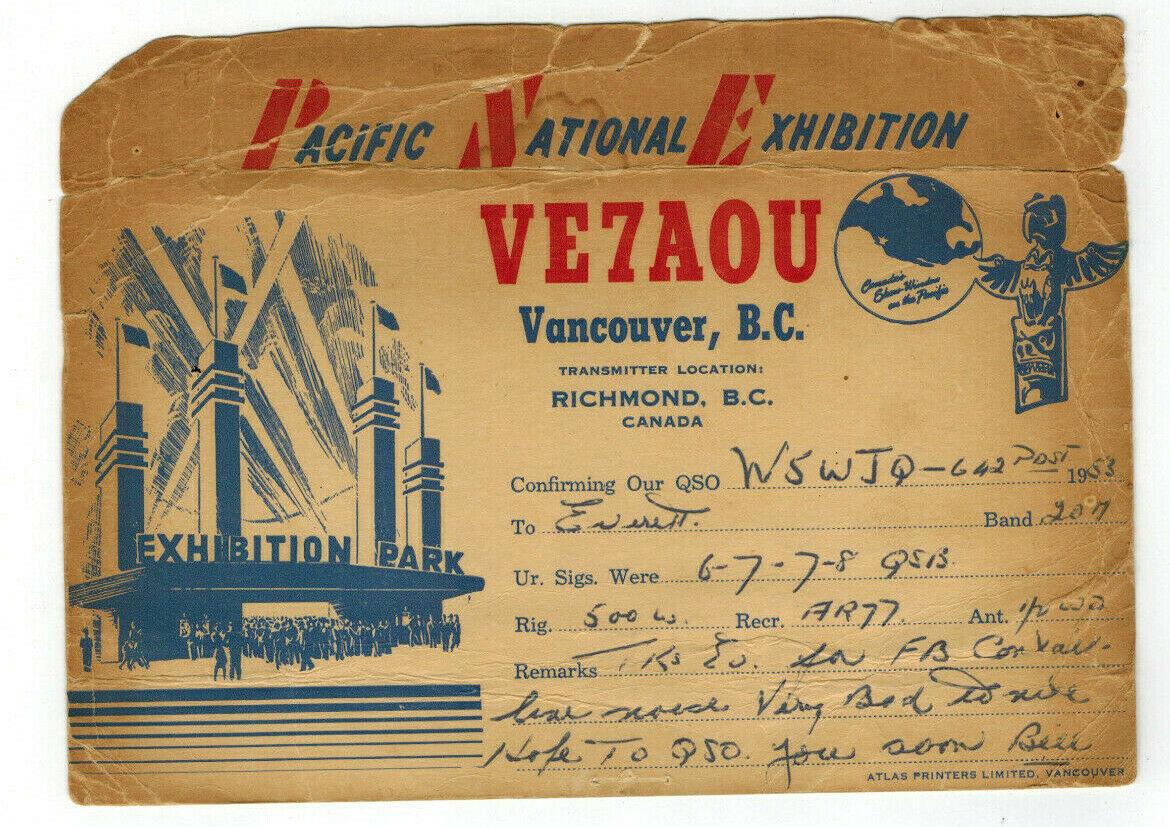 PACIFIC NATIONAL EXHIBITION
VE7AOU
Vancouver, B.C.
TRANSMITTER LOCATION:
RICHMOND, B.C.
CANADA
Canada's
Show Window
on the Pacific
EXHIBITION PARK
Confirming Our QSO W5WJQ-642 PDST 1953
To Everett. Band 20M
Ur. Sigs. Were 6-7-7-8 QSB.
Rig. 500 W. Recr. AR77. Ant. 1/2 W
Remarks TKs Ev. for FB Contact.
line noise Very Bad to nite
Hope To QSO. you soon Bill
ATLAS PRINTERS LIMITED, VANCOUVER